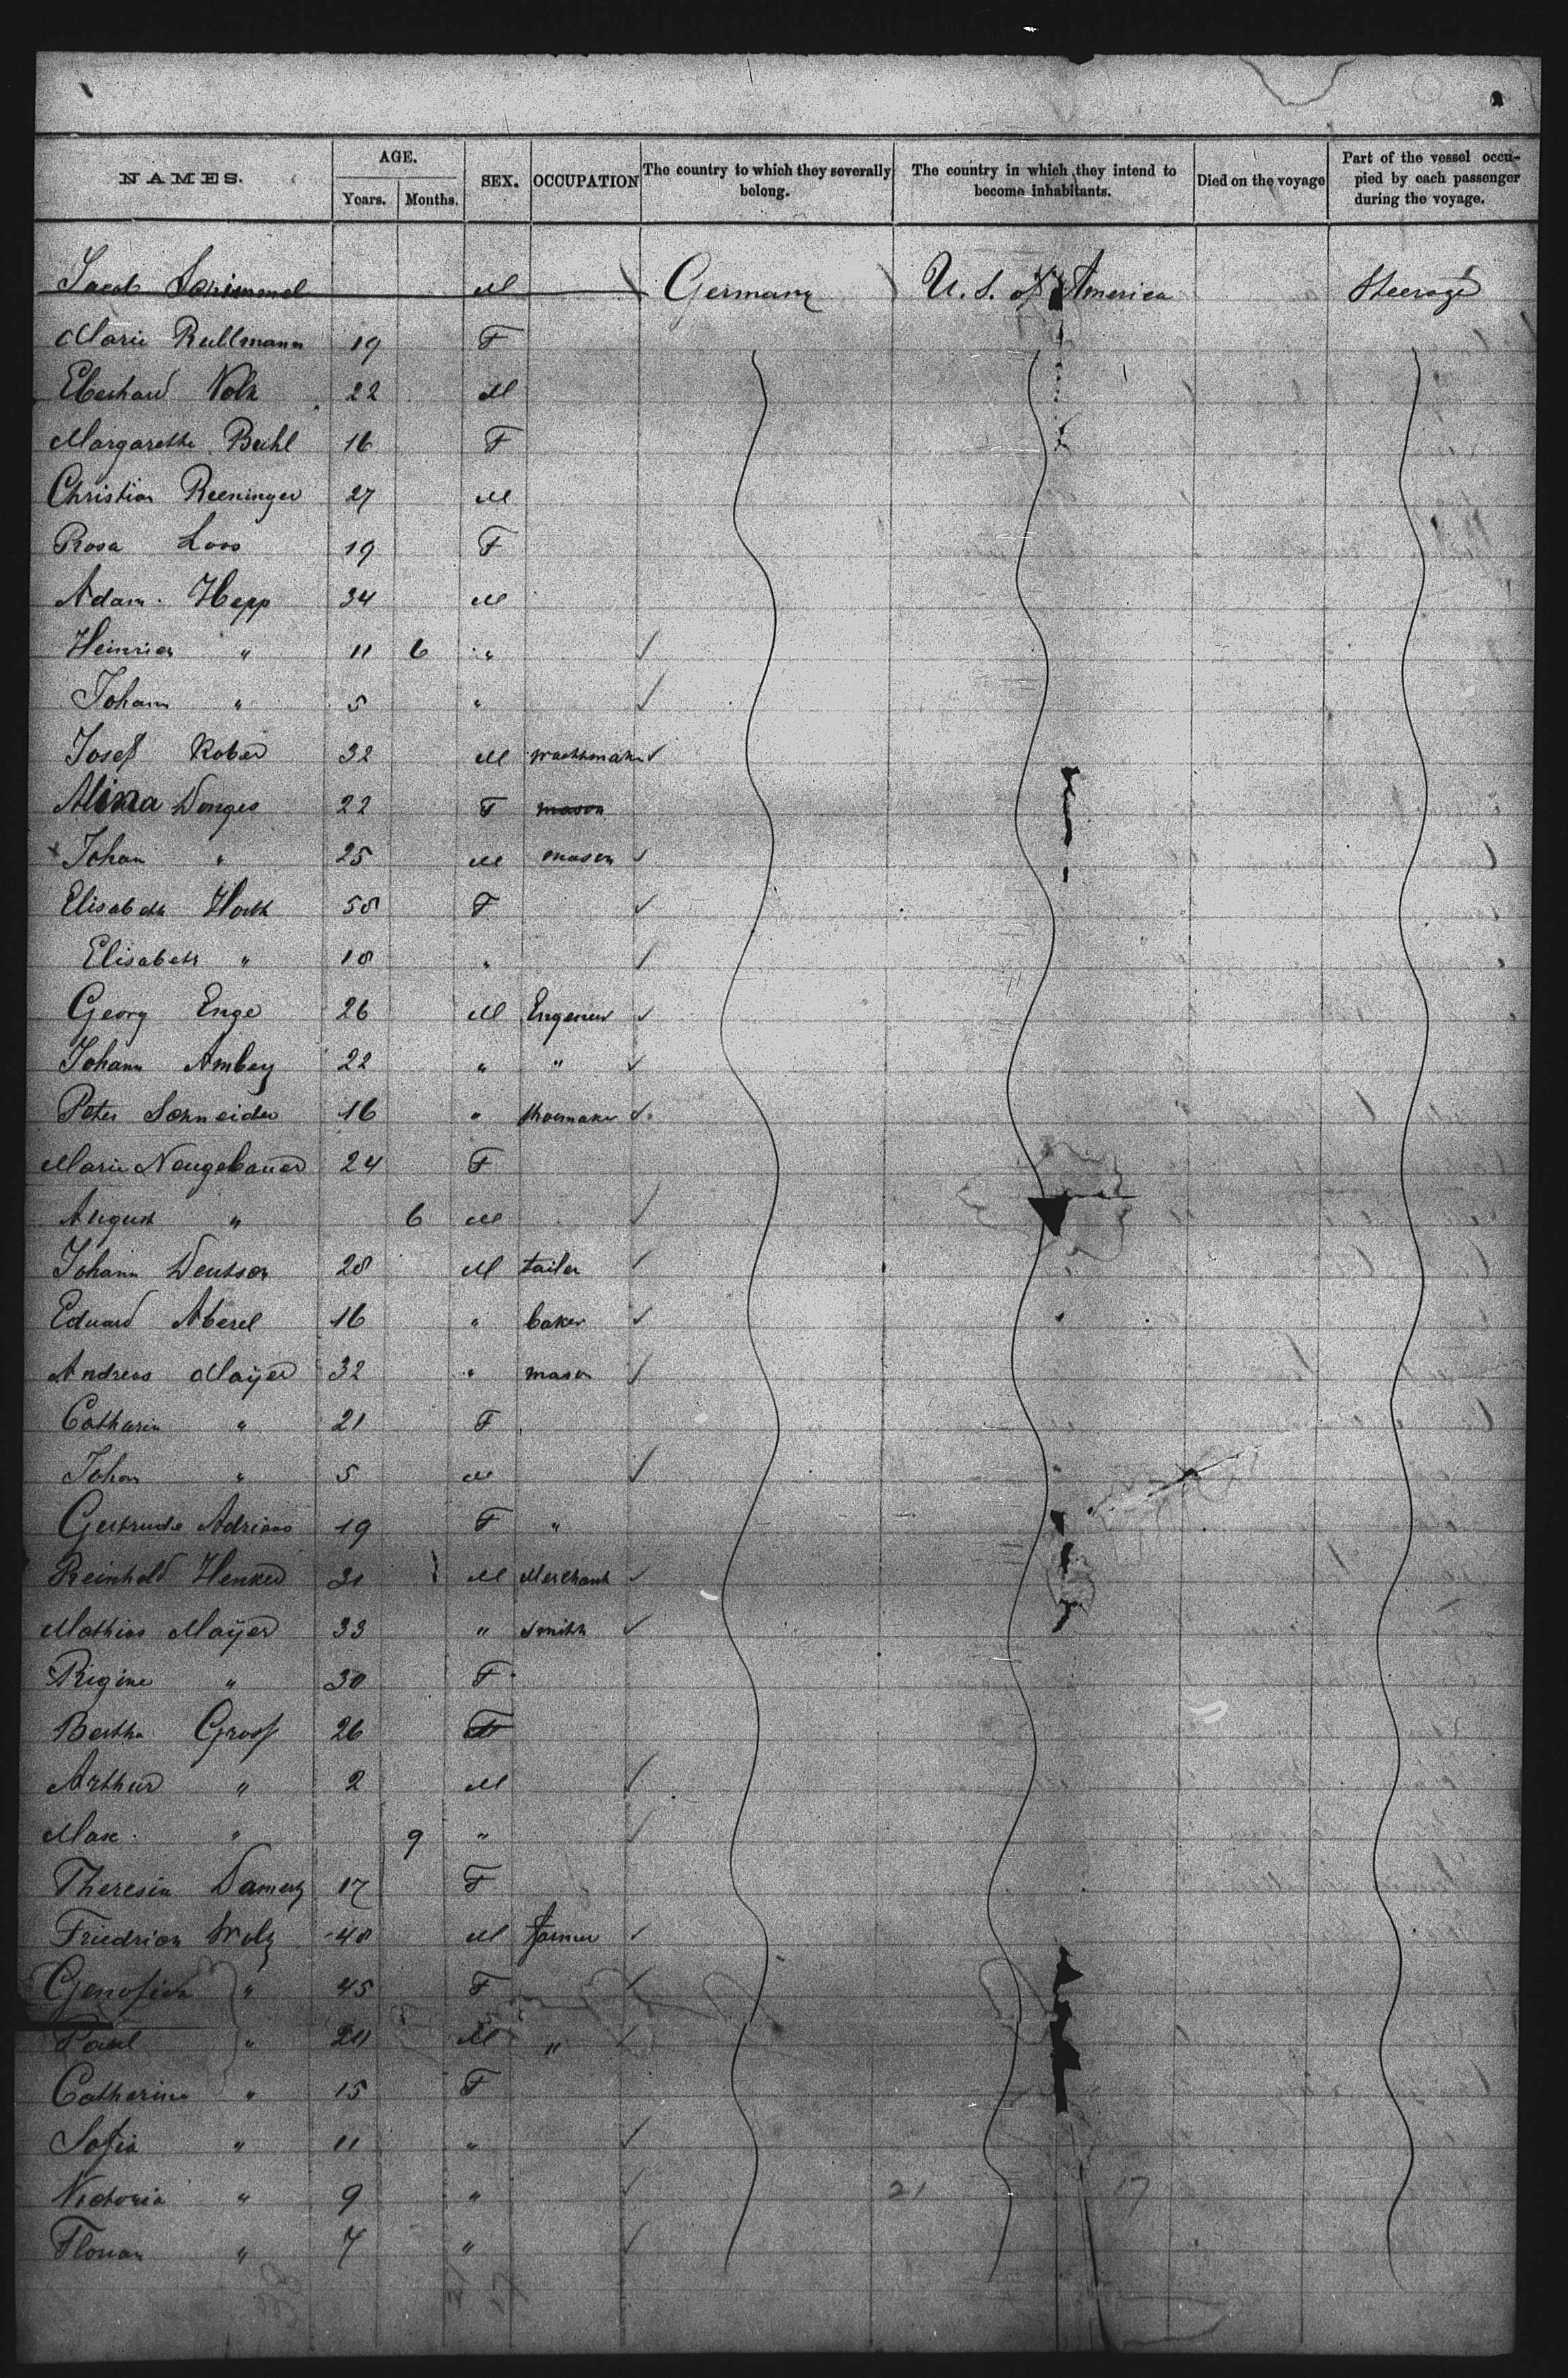 NAMES. AGE. Years. Months. SEX. OCCUPATION The country to which they severally belong. The country in which they intend to become inhabitants. Died on the voyage Part of the vessel occupied by each passenger during the voyage.
Jacob M Germany U. S. of America Steerage
Marie Rullmann 19 F
Eberhard Volk 22 M
Margarethe Buhl 16 F
Christian Reeninger 27 M
Rosa Loos 19 F
Adam Hepp 34 M
Heinrich " 11 6 "
Johann " 5 "
Josef Kober 32 M
Alina Donges 22 F mason
Johan " 25 M mason
Elisabeth 58 F
Elisabeth " 18 "
Georg Enge 26 M
Johann Amberg 22 " "
Peter Schneider 16 " shoemaker
Marie Neugebauer 24 F
August " 6 M
Johann Deutsch 28 M tailer
Eduard Aberel 16 " baker
Andreas Mayer 32 " mason
Catharin " 21 F
Johan " 5 M
Gertrude Adrians 19 F "
Reinhold Henker 31 M Merchant
Mathias Mayer 33 " Smith
Rigine " 30 F
Bertha Gross 26 F
Arthur " 2 M
Max " 9 "
Theresia Damerz 17 F
Friedrich Wolz 48 M farmer
Genofeva " 45 F
Paul " M "
Catharina " 15 F
Sofia " 11 "
Victoria " 9 " 21 17
Florian " 7 "